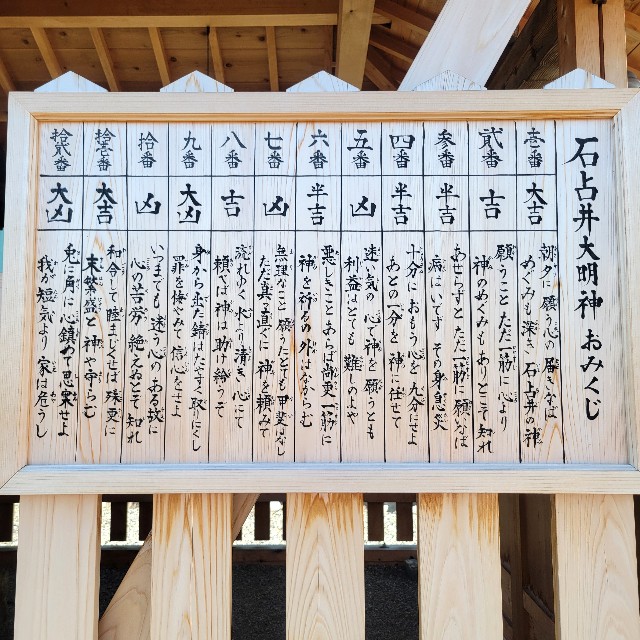 石占井大明神 おみくじ
壱番
大吉
朝夕に願う心の届きなば
めぐみも深き石占井の神
貮番
吉
願うことただ一筋に心より
神のめぐみもありとこそ知れ
参番
半吉
あせらずとただ一筋に願いなば
病はいです その身息災
四番
半吉
十分におもう心を九分にせよ
あとの一分を神に任せて
五番
凶
迷い気の心で神を願うとも
利益はとても難しかれや
六番
半吉
悪きことあらば尚更一筋に
神を祈るの外はなからむ
七番
凶
無理なこと願うたとても甲斐はなし
ただ真直に神を頼みて
八番
吉
流れゆく水より清き心にて
頼めば神は助け給うぞ
九番
大凶
身から出た錆はたやすく取にくし
罪を悔やみて信心をせよ
拾番
凶
いつまでも迷う心のある故に
心の苦労絶えぬとぞ知れ
拾壱番
大吉
和合して睦まじくせば殊更に
末繁盛と神や守らむ
拾貮番
大凶
兎に角に心鎮めて思案せよ
我が短気より家は危うし